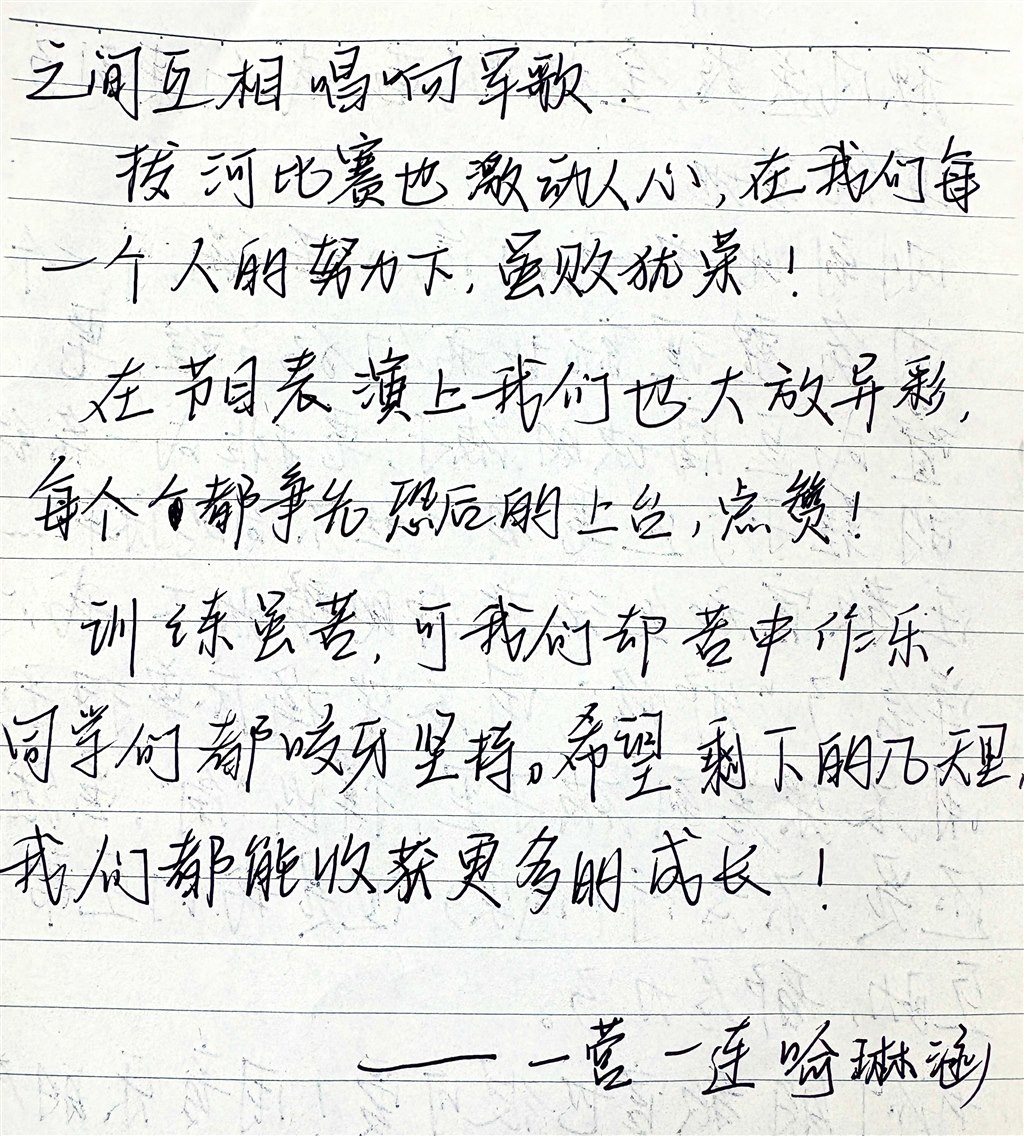 之间互相唱响军歌.
拔河比赛也激动人心,在我们每
一个人的努力下,虽败犹荣!
在节目表演上我们也大放异彩,
每个都争先恐后的上台,点赞!
训练虽苦,可我们却苦中作乐,
同学们都咬牙坚持。希望剩下的几天里,
我们都能收获更多的成长!
——一营一连喻琳涵